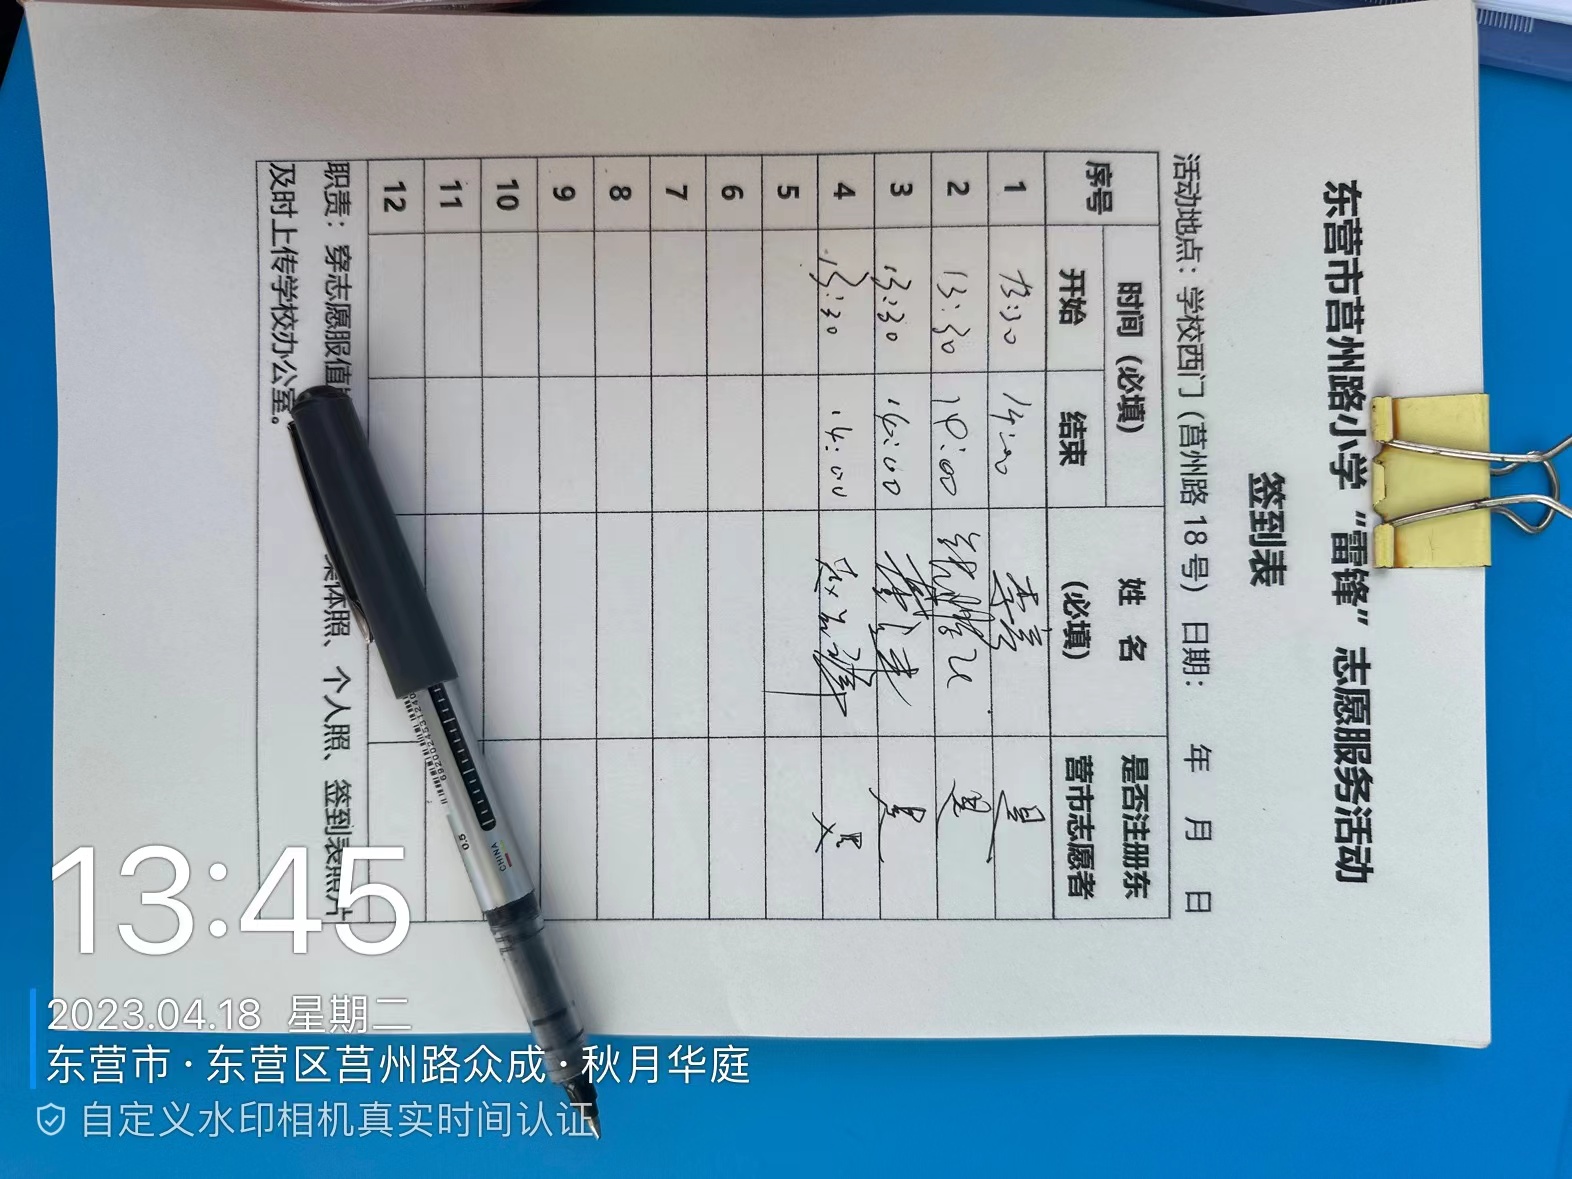 东营市莒州路小学“雷锋”志愿服务活动
签到表
活动地点：学校西门（莒州路 18 号） 日期： 年 月 日
序号 时间（必填） 姓 名（必填） 是否注册东营市志愿者
开始 结束
1 13:30 14:00 是
2 13:30 14:00 是
3 13:30 14:00 是
4 13:30 14:00 是
5
6
7
8
9
10
11
12
职责：穿志愿服值 集体照、个人照、签到表照片
及时上传学校办公室。
6920024531240
0.5
CHINA
13:45
2023.04.18 星期二
东营市·东营区莒州路众成·秋月华庭
自定义水印相机真实时间认证